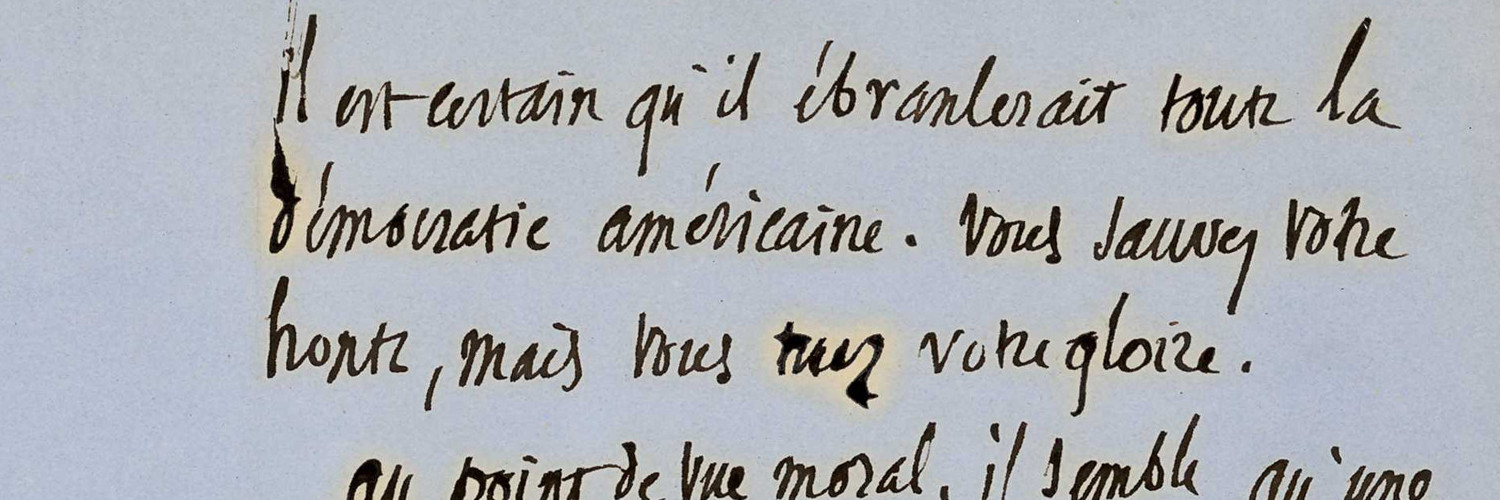 Il est certain qu'il ébranlerait toute la
démocratie américaine. Vous sauvez votre
honte, mais vous tuez votre gloire.
au point de vue moral, il semble qu'une